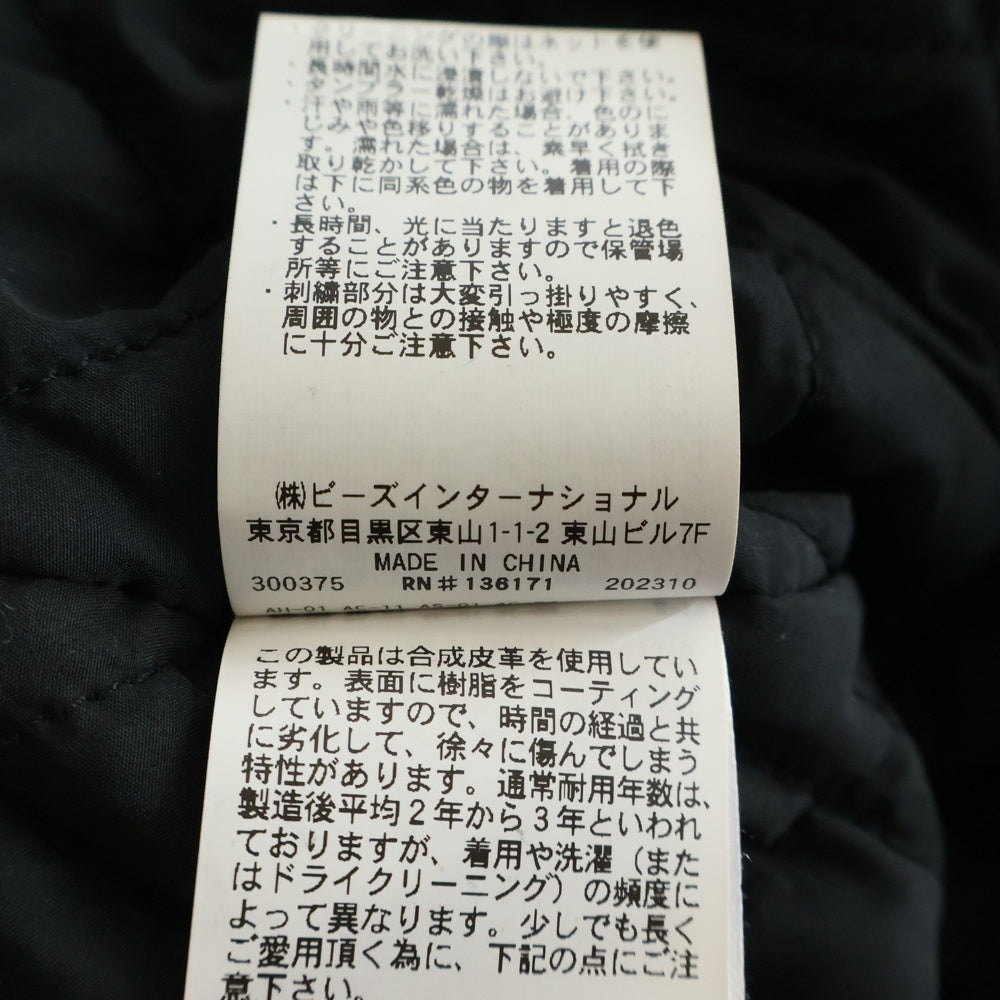 クリーニングの際はネットを使
用してお洗い下さい。
・長時間水に浸漬しないで下さい。
・タンブラー乾燥はお避け下さい。
・汗や雨等に濡れた場合、色のに
じみや色移りすることがありま
す。濡れた場合は、素早く拭き
取り乾かして下さい。着用の際
は下に同系色の物を着用して下
さい。
・長時間、光に当たりますと退色
することがありますので保管場
所等にご注意下さい。
・刺繍部分は大変引っ掛りやすく、
周囲の物との接触や極度の摩擦
に十分ご注意下さい。
㈱ビーズインターナショナル
東京都目黒区東山1-1-2 東山ビル7F
MADE IN CHINA
300375 RN#136171 202310
AH-01 AC-11 AS-01
この製品は合成皮革を使用してい
ます。表面に樹脂をコーティング
していますので、時間の経過と共
に劣化して、徐々に傷んでしまう
特性があります。通常耐用年数は、
製造後平均2年から3年といわれ
ておりますが、着用や洗濯（また
はドライクリーニング）の頻度に
よって異なります。少しでも長く
ご愛用頂く為に、下記の点にご注
意下さい。